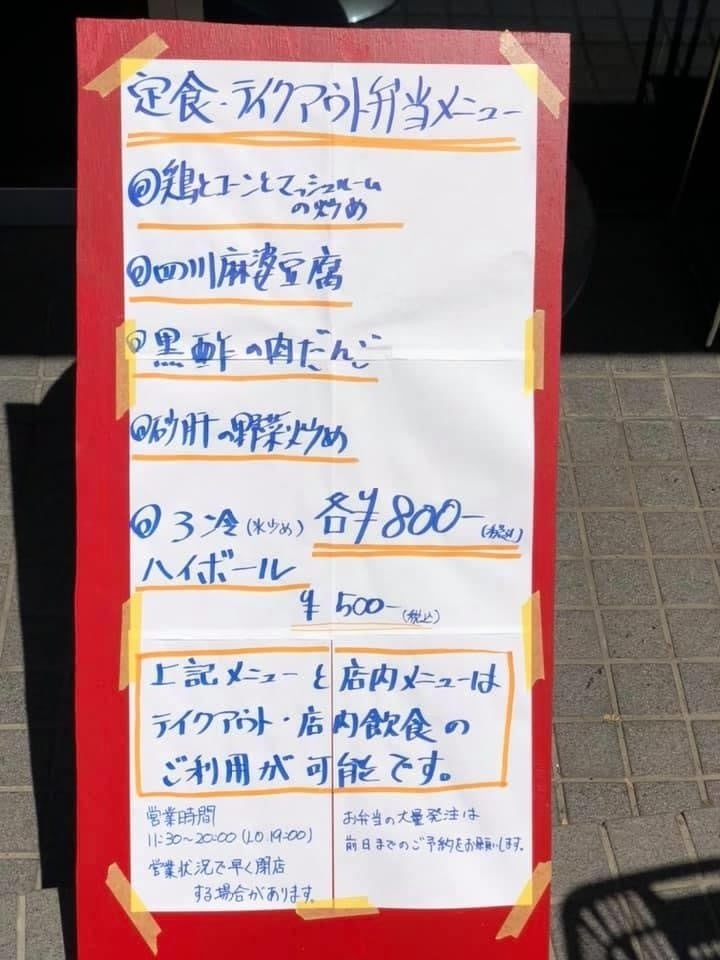 定食・テイクアウト弁当メニュー
鶏とコーンとマッシュルーム
の炒め
四川麻婆豆腐
黒酢の肉だんご
砂肝の野菜炒め
3冷(氷少め) 各¥800-(税込)
ハイボール
¥500-(税込)
上記メニューと店内メニューは
テイクアウト・店内飲食の
ご利用が可能です。
営業時間
11:30~20:00(LO 19:00)
営業状況で早く閉店
する場合があります。
お弁当の大量発注は
前日までのご予約をお願いします。